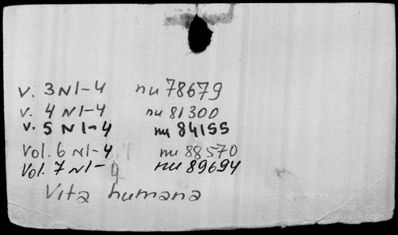 v. 3 N1-4 nu 78679
v. 4 N1-4 nu 81300
v. 5 N1-4 nu 84155
Vol. 6 N1-4 nu 88570
Vol. 7 N1-4 nu 89694
Vita humana